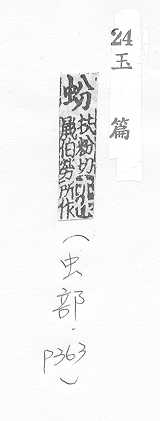 24
玉篇
蚡
扶粉切
屬伯勞所作
(虫部·p363)